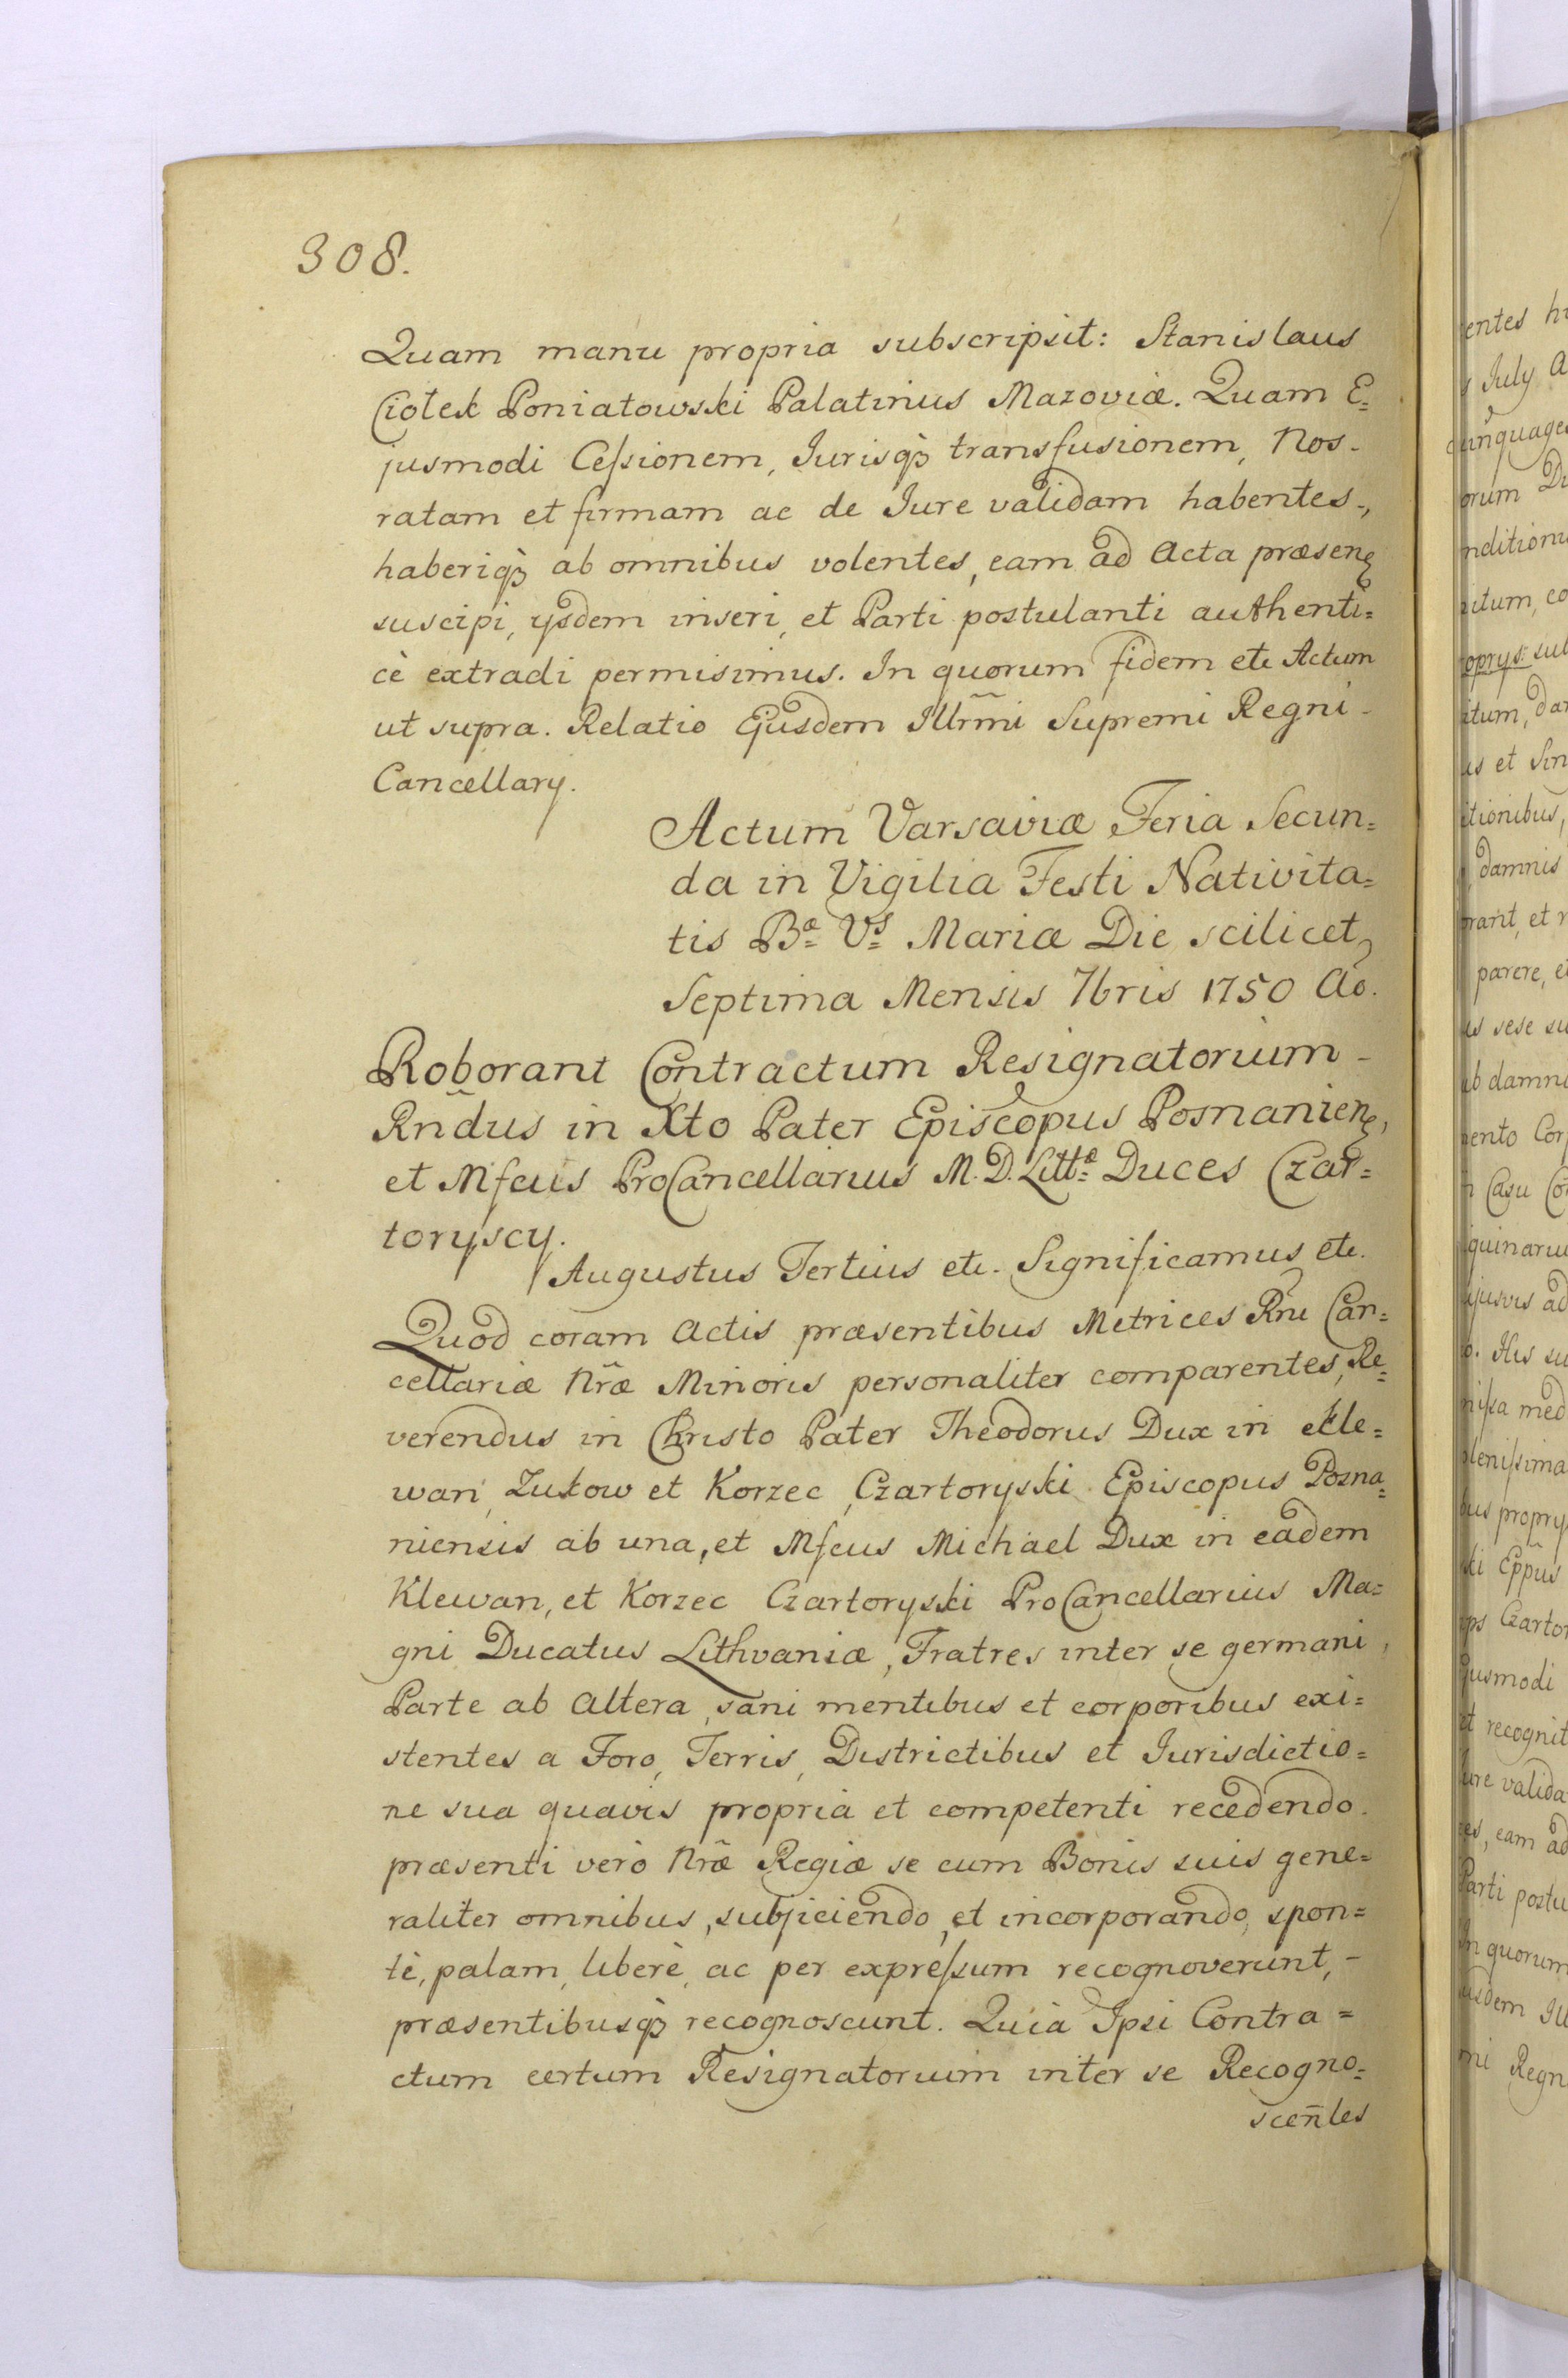 308.
Quam manu propria subscripsit: Stanislaus
Ciołek Poniatowski Palatinus Mazoviæ. Quam E=
jusmodi Ceſsionem, Jurisqȝ transfusionem, Nos-
ratam et firmam ac de Jure validam habentes-,
haberiqȝ ab omnibus volentes, eam ad Acta præsenꝭ
suscipi, ysdem inseri, et Parti postulanti authenti=
cè extradi permisimus. In quorum fidem etc Actum
ut supra. Relatio Ejusdem Illrm̃i Supremi Regni-
Cancellary.
Actum Varsaviæ Feria Secun=
da in Vigilia Festi Nativita=
tis Bæ Vs Mariæ Die scilicet
Septima Mensis 7bris 1750 Ao.
Roborant Contractum Resignatorium-
Rñdus in Xto Pater Episcopus Posnanienꝭ,
et Mfcus ProCancellarius M. D. Littæ Duces Czar=
toryscy.
Augustus Tertius etc. Significamus etc.
Quod coram Actis præsentibus Metrices Rni Can=
cellariæ Nrã Minoris personaliter comparentes, Re=
verendus in Christo Pater Theodorus Dux in Kle=
wan, Zukow et Korzec, Czartoryski Episcopus Pozna=
niensis ab una, et Mfcus Michael Dux in eadem
Klewan, et Korzec Czartoryski ProCancellarius Ma=
gni Ducatus Lithvaniæ, Fratres inter se germani,
Parte ab altera, sani mentibus et corporibus exi=
stentes a Foro, Terris, Districtibus et Jurisdictio=
ne sua quavis propria et competenti recedendo.
præsenti verò Nrã Regiæ se cum Bonis suis gene=
raliter omnibus, subjiciendo, et incorporando, spon=
tè, palam, liberè, ac per expreſsum recognoverunt,-
præsentibusqȝ recognoscunt. Quia Ipsi Contra=
ctum certum Resignatorium inter se Recogno=
sceñtes